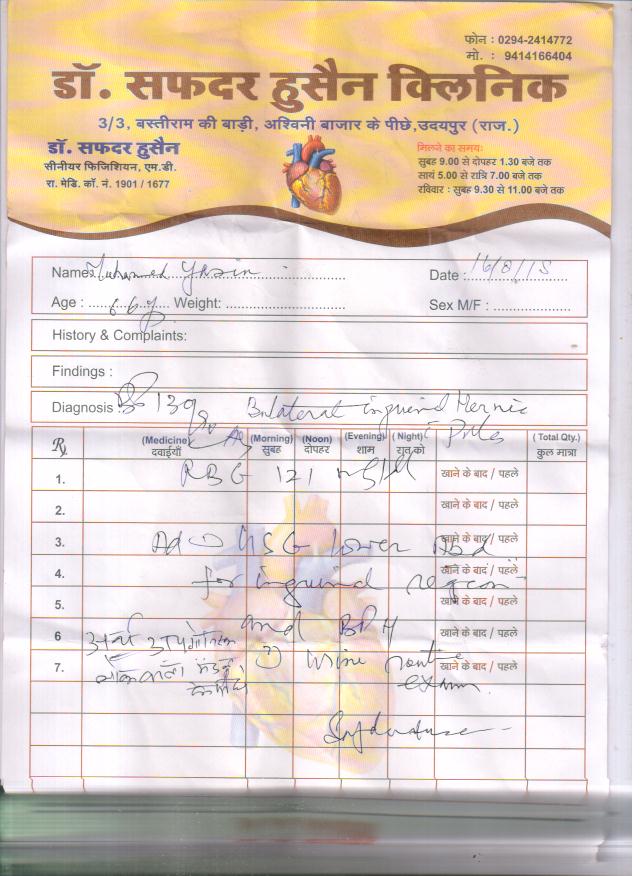 फोन : 0294-2414772
मो. : 9414166404
डॉ. सफदर हुसैन क्लिनिक
3/3, बस्तीराम की बाड़ी, अश्विनी बाजार के पीछे,उदयपुर (राज.)
डॉ. सफदर हुसैन
सीनीयर फिजिशियन, एम.डी.
रा. मेडि. कॉ. नं. 1901 / 1677
मिलने का समयः
सुबह 9.00 से दोपहर 1.30 बजे तक
सायं 5.00 से रात्रि 7.00 बजे तक
रविवार : सुबह 9.30 से 11.00 बजे तक
Name: Muhammed Yasin Date : 16/8/15
Age : 66y Weight: Sex M/F :
History & Complaints:
Findings :
Diagnosis : Bilateral inguinal Hernia
Piles
Rx (Medicine) दवाईयाँ (Morning) सुबह (Noon) दोपहर (Evening) शाम (Night) रात को (Total Qty.) कुल मात्रा
1. RBG 121 mg/dl खाने के बाद / पहले
2. खाने के बाद / पहले
3. Ad 1) USG lower Abd खाने के बाद / पहले
4. for inguinal region खाने के बाद / पहले
5. खाने के बाद / पहले
and BPH
6 खाने के बाद / पहले
7. 2) urine routine खाने के बाद / पहले
exam.